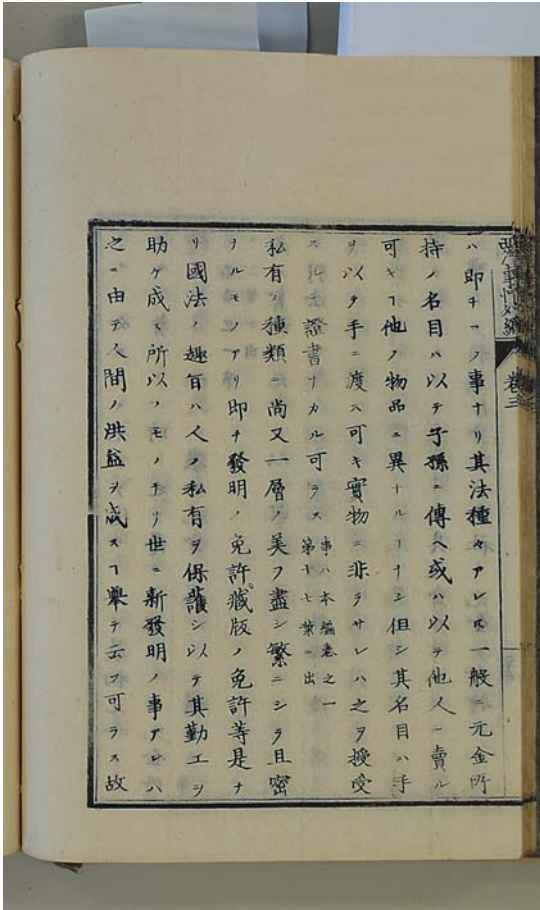 西洋事情外編 卷三
ハ即チコノ事ナリ其法種々アレ𪜈一般ニ元金所
持ノ名目ハ以テ子孫ニ傳ヘ或ハ以テ他人ニ賣ル
可キヿ他ノ物品ニ異ナルヿナシ但シ其名目ハ手
ヲ以テ手ニ渡ス可キ實物ニ非ラサレハ之ヲ授受
スルニ證書ナカル可ラス 事ハ本編卷之一
第十七葉ニ出
私有ノ種類ニ尚又一層ノ美ヲ盡シ繁ニシテ且密
ナルモノアリ即チ發明ノ免許藏版ノ免許等是ナ
リ國法ノ趣旨ハ人ノ私有ヲ保護シ以テ其勤工ヲ
助ケ成ス所以ノモノナリ世ニ新發明ノ事アレハ
之ニ由テ人間ノ洪益ヲ成スヿ擧テ云フ可ラス故